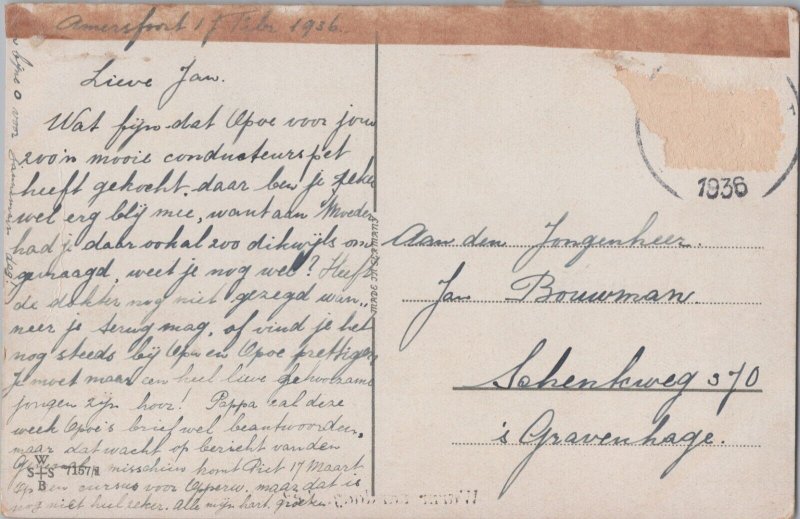 Amersfoort 17 Febr 1936
Lieve Jan.
Wat fijn dat Opoe voor jou
zoo'n mooie conducteurspet
heeft gekocht, daar ben je zeker
wel erg blij mee, want aan Moeder
had je daar ook al zoo dikwijls om
gevraagd, weet je nog wel? Heeft
de dokter nog niet gezegd wan-
neer je terug mag, of vind je het
nog steeds bij Opa en Opoe prettiger.
Je moet maar een heel lieve gehoorzame
jongen zijn hoor! Pappa zal deze
week Opoe's brief wel beantwoorden,
maar dat wacht op bericht van den
misschien komt Piet 17 Maart
op een cursus voor Opperw. maar dat is
nog niet heel zeker. Alle mijn hart. groeten
en O van
dag!
W
S S
B
7167/1
MADE IN GERMANY
1936
Aan den Jongenheer
Jan Bouwman
Schenkweg 370
's Gravenhage.